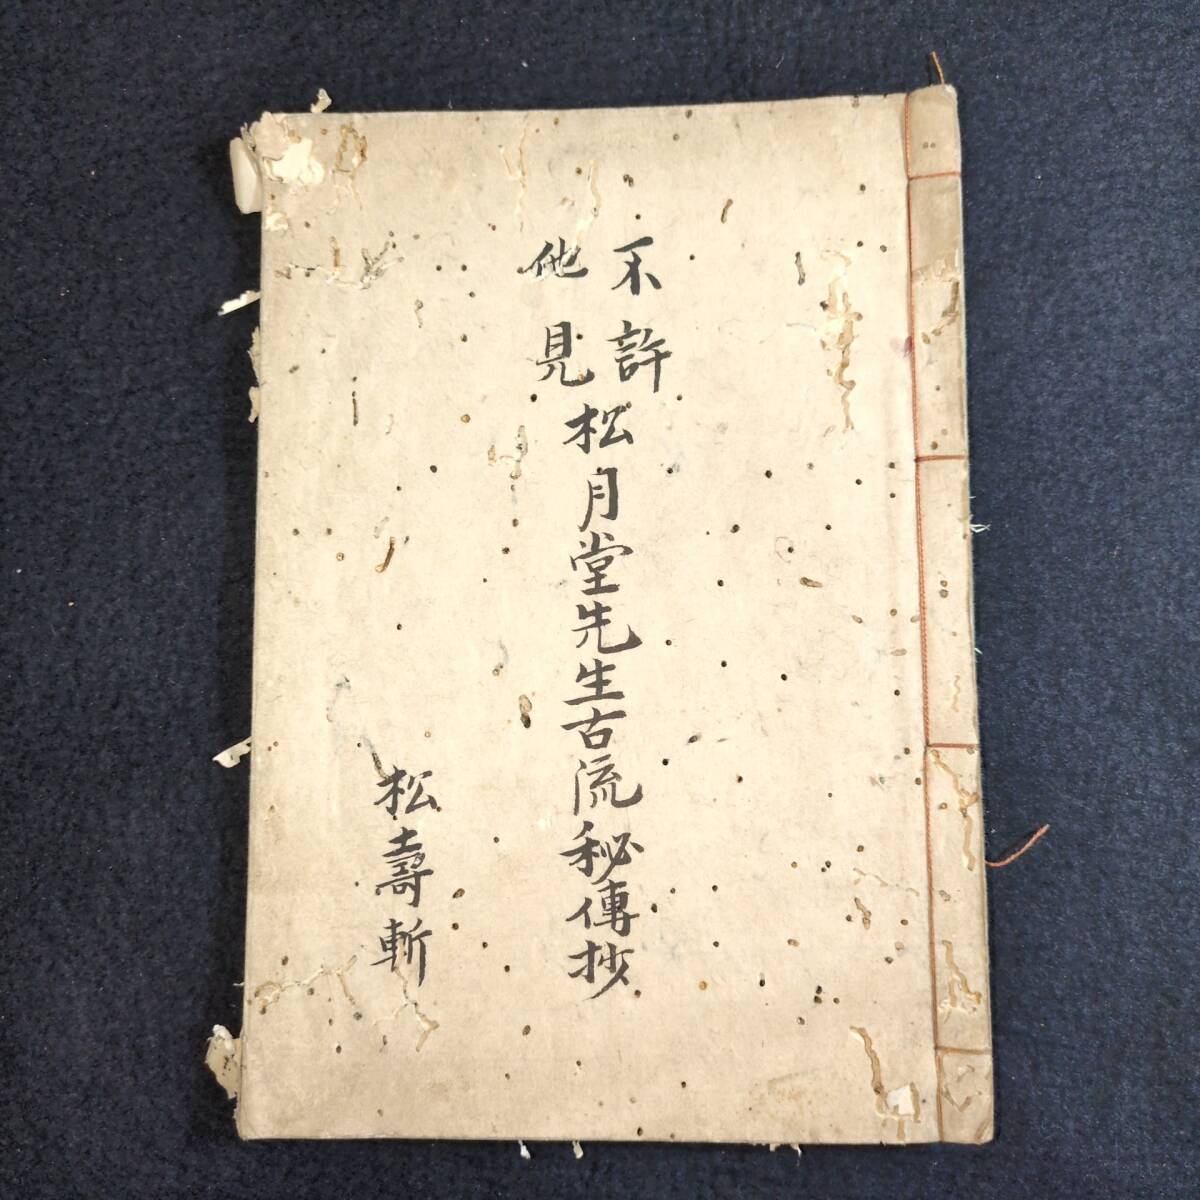 不許
他見
松月堂先生古流秘傳抄
松壽斬